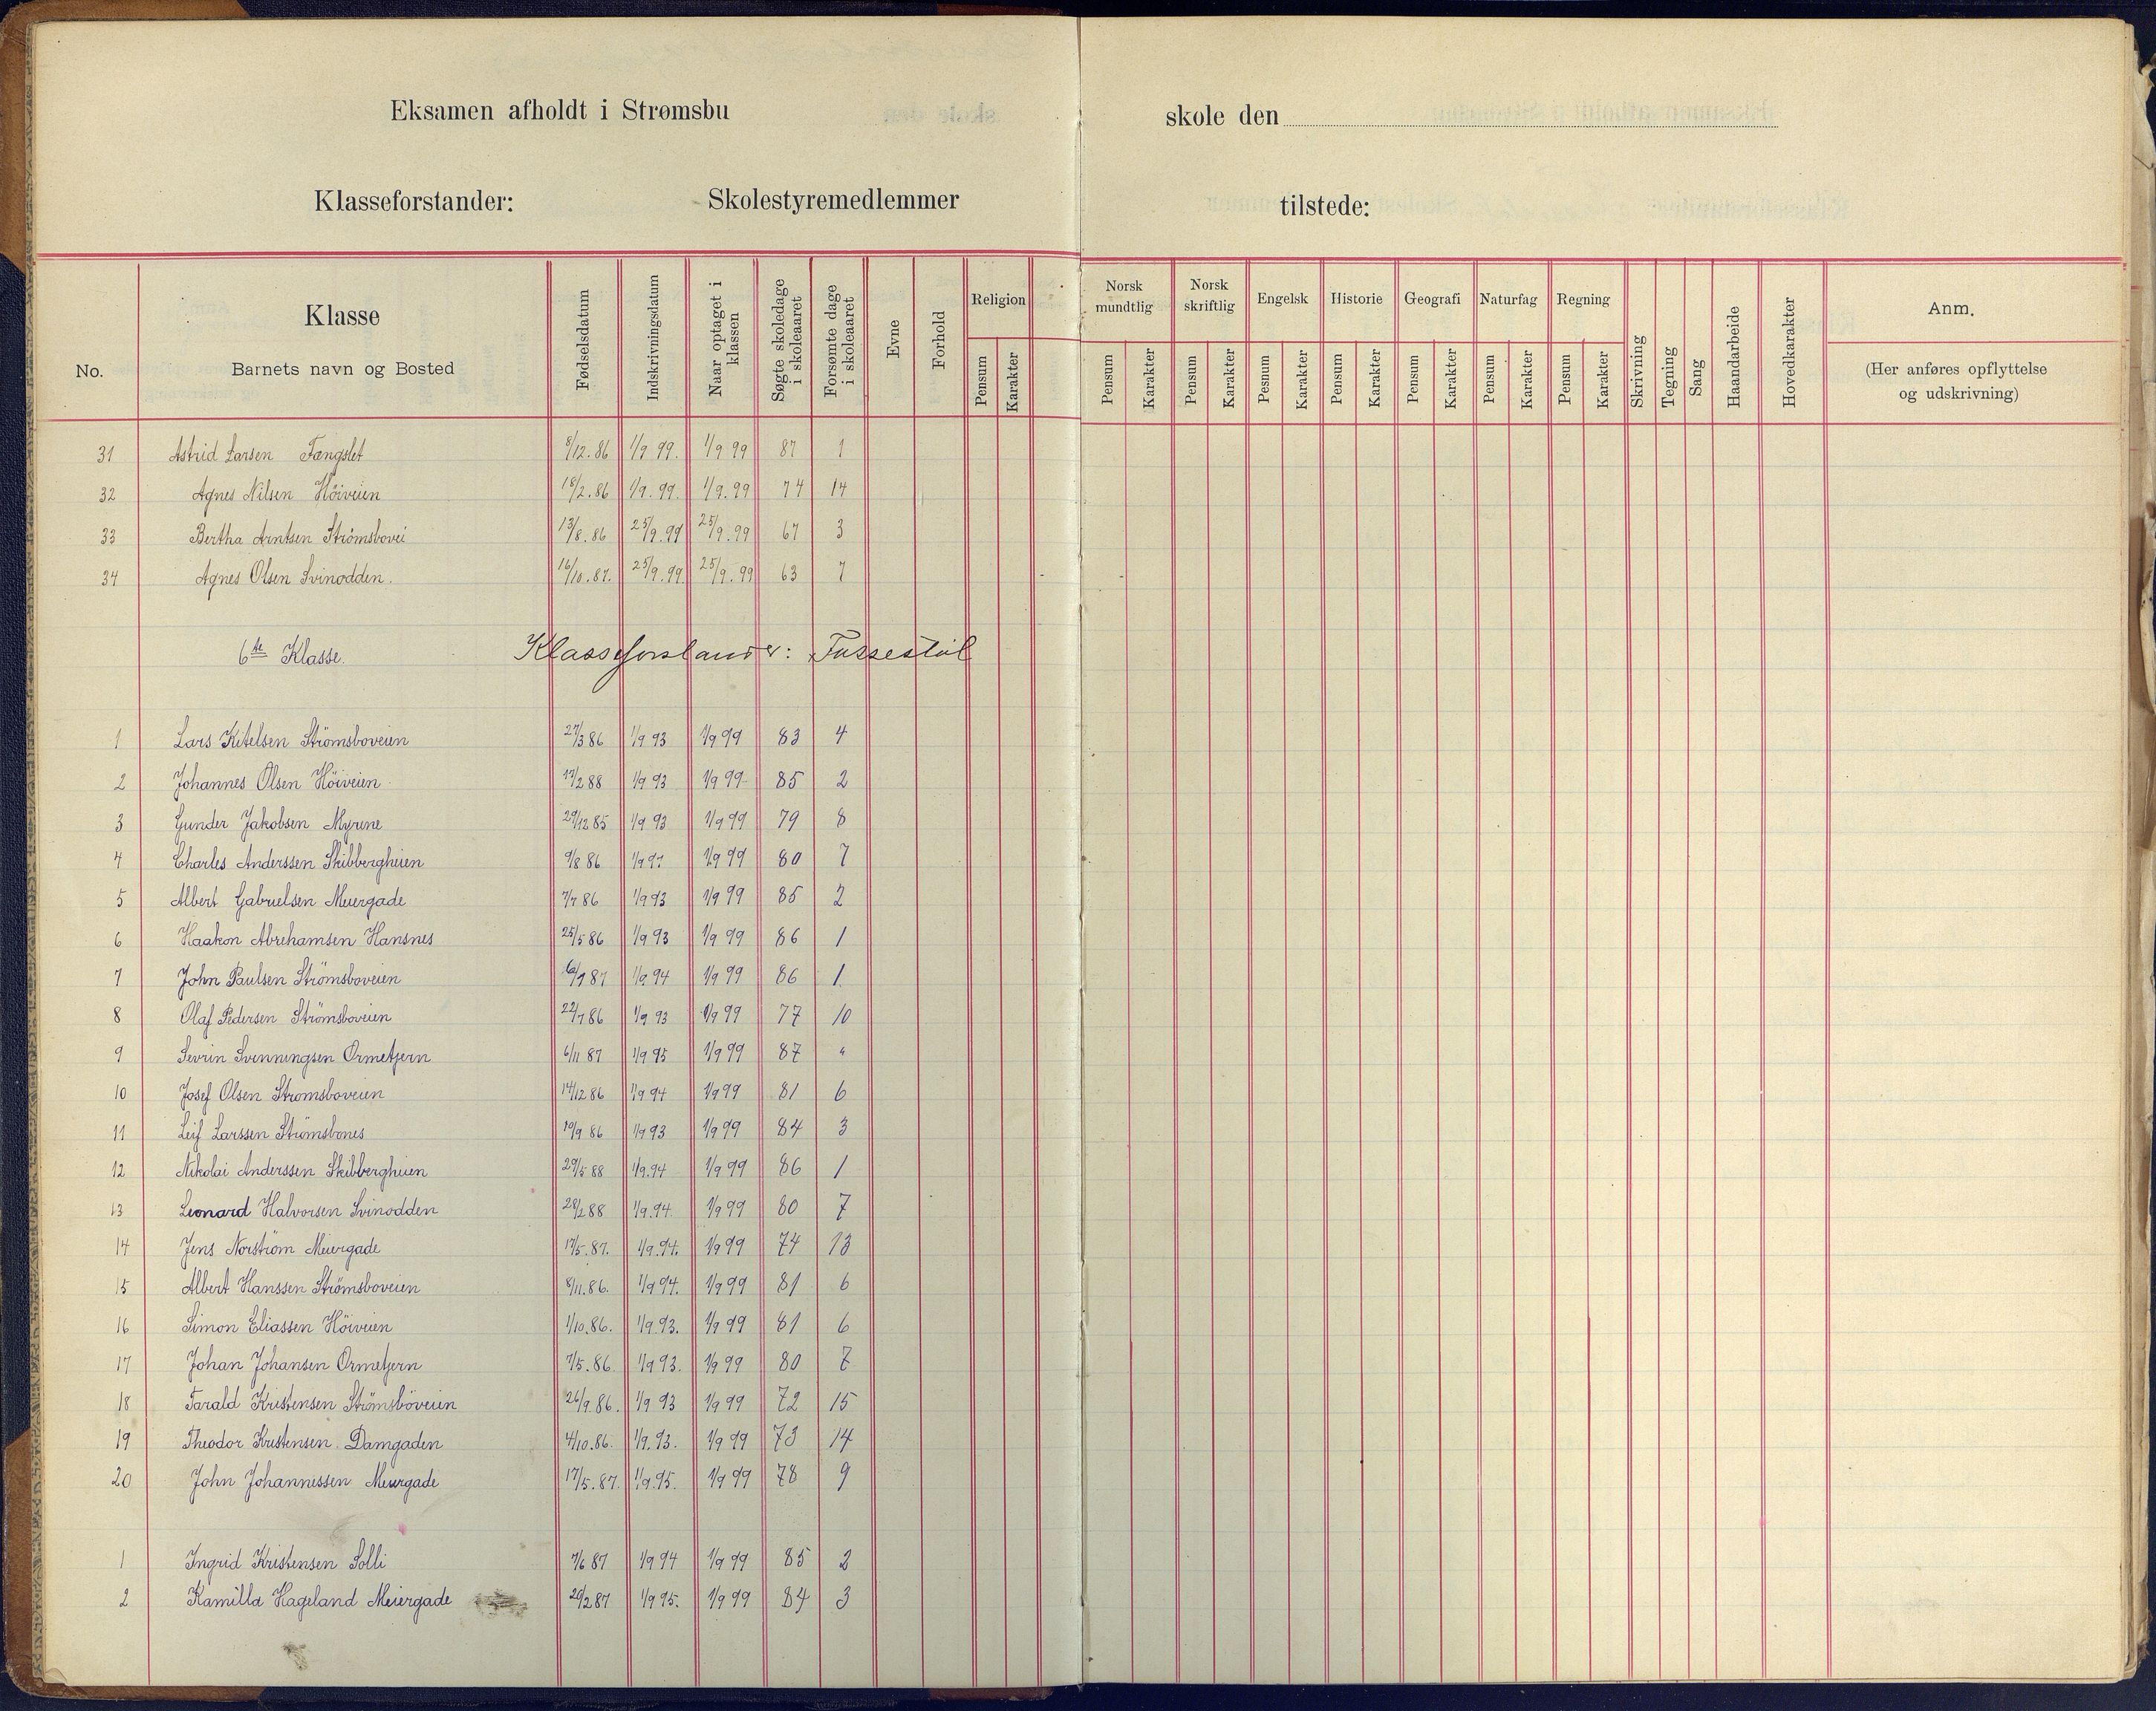 Eksamen afholdt i Strømsbu skole den
Klasseforstander: Skolestyremedlemmer tilstede:
No. Klasse Barnets navn og Bosted Fødselsdatum Indskrivningsdatum Naar optaget i klassen Søgte skoledage i skoleaaret Forsømte dage i skoleaaret Evne Forhold Religion Norsk mundtlig Norsk skriftlig Engelsk Historie Geografi Naturfag Regning Skrivning Tegning Sang Haandarbeide Hovedkarakter Anm. (Her anføres opflyttelse og udskrivning)
Pensum Karakter Pensum Karakter Pensum Karakter Pesnum Karakter Pensum Karakter Pensum Karakter Pensum Karakter Pensum Karakter
31 Astrid Larsen Fængslet 8/12.86 1/9 99. 1/9 99 87 1
32 Agnes Nilsen Höiveien 18/2.86 1/9.99. 1/9.99 74 14
33 Bertha Arntsen Strömsbovei 13/8.86 25/9.99 25/9.99 67 3
34 Agnes Olsen Svinodden. 16/10.87. 25/9.99. 25/9.99 63 7
6te Klasse. Klasseforstander: Tussestöl
1 Lars Kitelsen Strömsboveien 27/3 86 1/9 93 1/9 99 83 4
2 Johannes Olsen Höiveien 17/2 88 1/9 93 1/9 99 85 2
3 Gunder Jakobsen Myrene 29/12 85 1/9 93 1/9 99 79 8
4 Charles Anderssen Skibbergheien 9/8 86 1/9 97 1/9 99 80 7
5 Albert Gabrielsen Meiergade 7/7 86 1/9 93 1/9 99 85 2
6 Haakon Abrehamsen Hansnes 25/5 86 1/9 93 1/9 99 86 1
7 John Paulsen Strömsboveien 87 1/9 94 1/9 99 86 1.
8 Olaf Pedersen Strömsboveien 22/7 86 1/9 93 1/9 99 77 10
9 Sevrin Svenningsen Ormetjern 6/11 87 1/9 95 1/9 99 87 "
10 Josef Olsen Stromsboveien 14/12 86 1/9 94 1/9 99 81 6
11 Leif Larssen Strömsbones 10/9 86 1/9 93 1/9 99 84 3
12 Nikolai Anderssen Skibbergheien 29/5 88 1/9.94 1/9 99 86 1
13 Leonard Halvorsen Svinodden 28/2 88 1/9.94. 1/9 99 80 7
14 Jens Norström Meiergade 17/5.87. 1/9.94. 1/9 99 74 13
15 Albert Hanssen Strömsboveien 8/11.86. 1/9 94. 1/9 99 81 6
16 Simon Eliassen Höiveien 1/10.86. 1/9 93. 1/9 99 81 6
17 Johan Johansen Ormetjern 7/5.86. 1/9 93. 1/9 99 80 7
18 Tarald Kristensen Strömsböveien 26/9.86. 1/9 93 1/9 99 72 15
19 Theodor Kristensen Damgaden 4/10.86. 1/9.93. 1/9 99 73 14
20 John Johannessen Meiergade 17/5.87. 1/9.95. 1/9 99 78 9
1 Ingrid Kristensen Solli 7/6 87 1/9 94 1/9 99 85 2
2 Kamilla Hageland Meiergade 20/2 87 1/9 95. 1/9 99 84 3